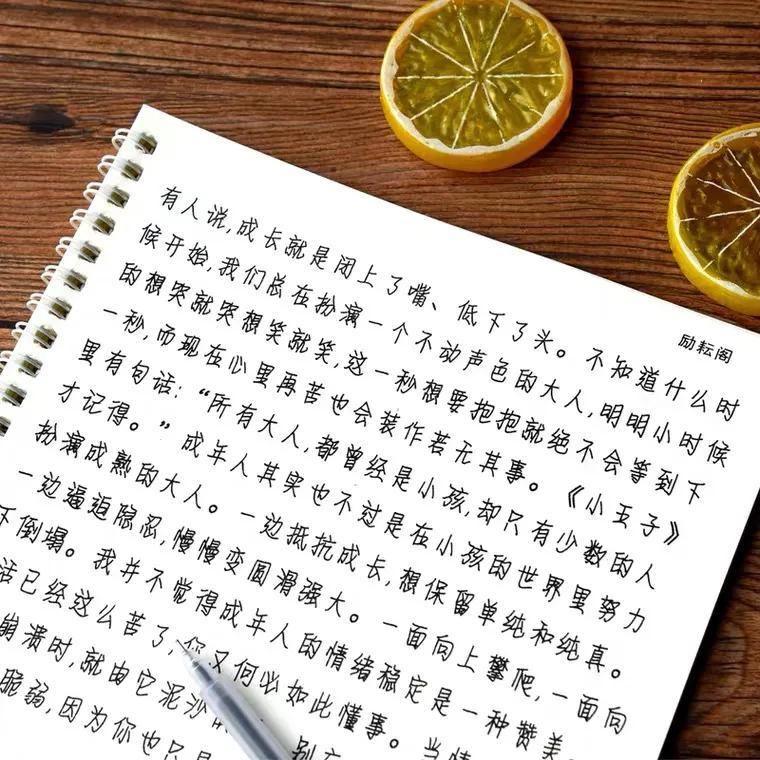 励耘阁
有人说,成长就是闭上了嘴、低下了头。不知道什么时
候开始,我们总在扮演一个不动声色的大人,明明小时候
的想哭就哭想笑就笑,这一秒想要抱抱就绝不会等到下
一秒,而现在心里再苦也会装作若无其事。《小王子》
里有句话:“所有大人,都曾经是小孩,却只有少数的人
才记得。”成年人其实也不过是在小孩的世界里努力
扮演成熟的大人。一边抵抗成长,想保留单纯和纯真。
一边逼迫隐忍,慢慢变圆滑强大。一面向上攀爬,一面向
下倒塌。我并不觉得成年人的情绪稳定是一种赞美。
活已经这么苦了,你又何必如此懂事。当情
崩溃时,就由它泥沙
脆弱,因为你也只是